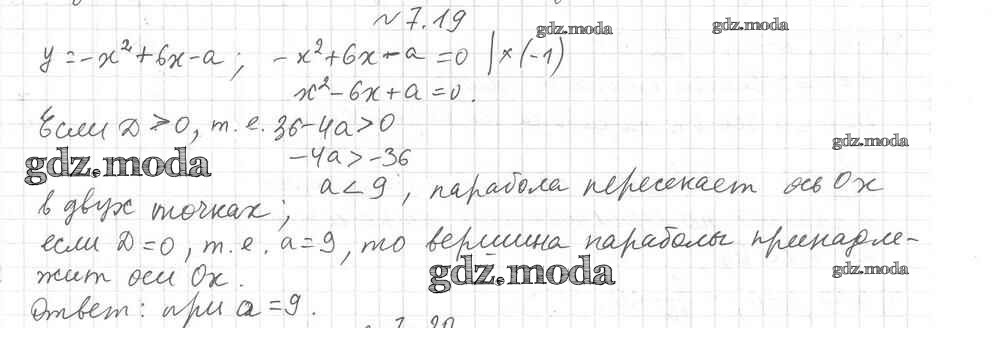 № 7.19
gdz.moda gdz.moda
y = -x² + 6x - a ; -x² + 6x - a = 0 | × (-1)
x² - 6x + a = 0.
Если D > 0, т. е. 36 - 4a > 0
gdz.moda
-4a > -36
gdz.moda
a < 9 , парабола пересекает ось Ox
в двух точках;
если D = 0, т. е. a = 9, то вершина параболы принадле-
жит оси Ox.
gdz.moda gdz.moda
Ответ: при a = 9.